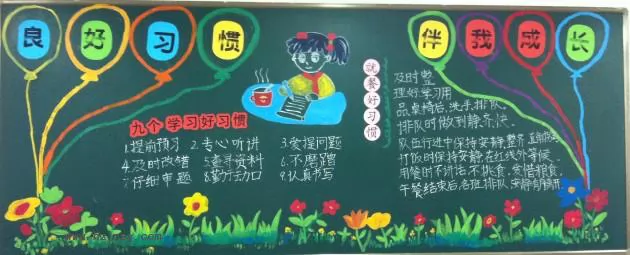 良好习惯
伴我成长
九个学习好习惯
1.提前预习 2.专心听讲 3.爱提问题
4.及时改错 5.查寻资料 6.不磨蹭
7.仔细审题 8.勤于动口 9.认真书写
就餐好习惯
及时整
理好学习用
品,桌椅后,洗手,排队。
排队时做到静、齐、快。
队伍行进中保持安静,整齐
打饭时保持安静,在红线外等候。
用餐时不讲话,不挑食,爱惜粮食。
午餐结束后,各班排队,安静有序